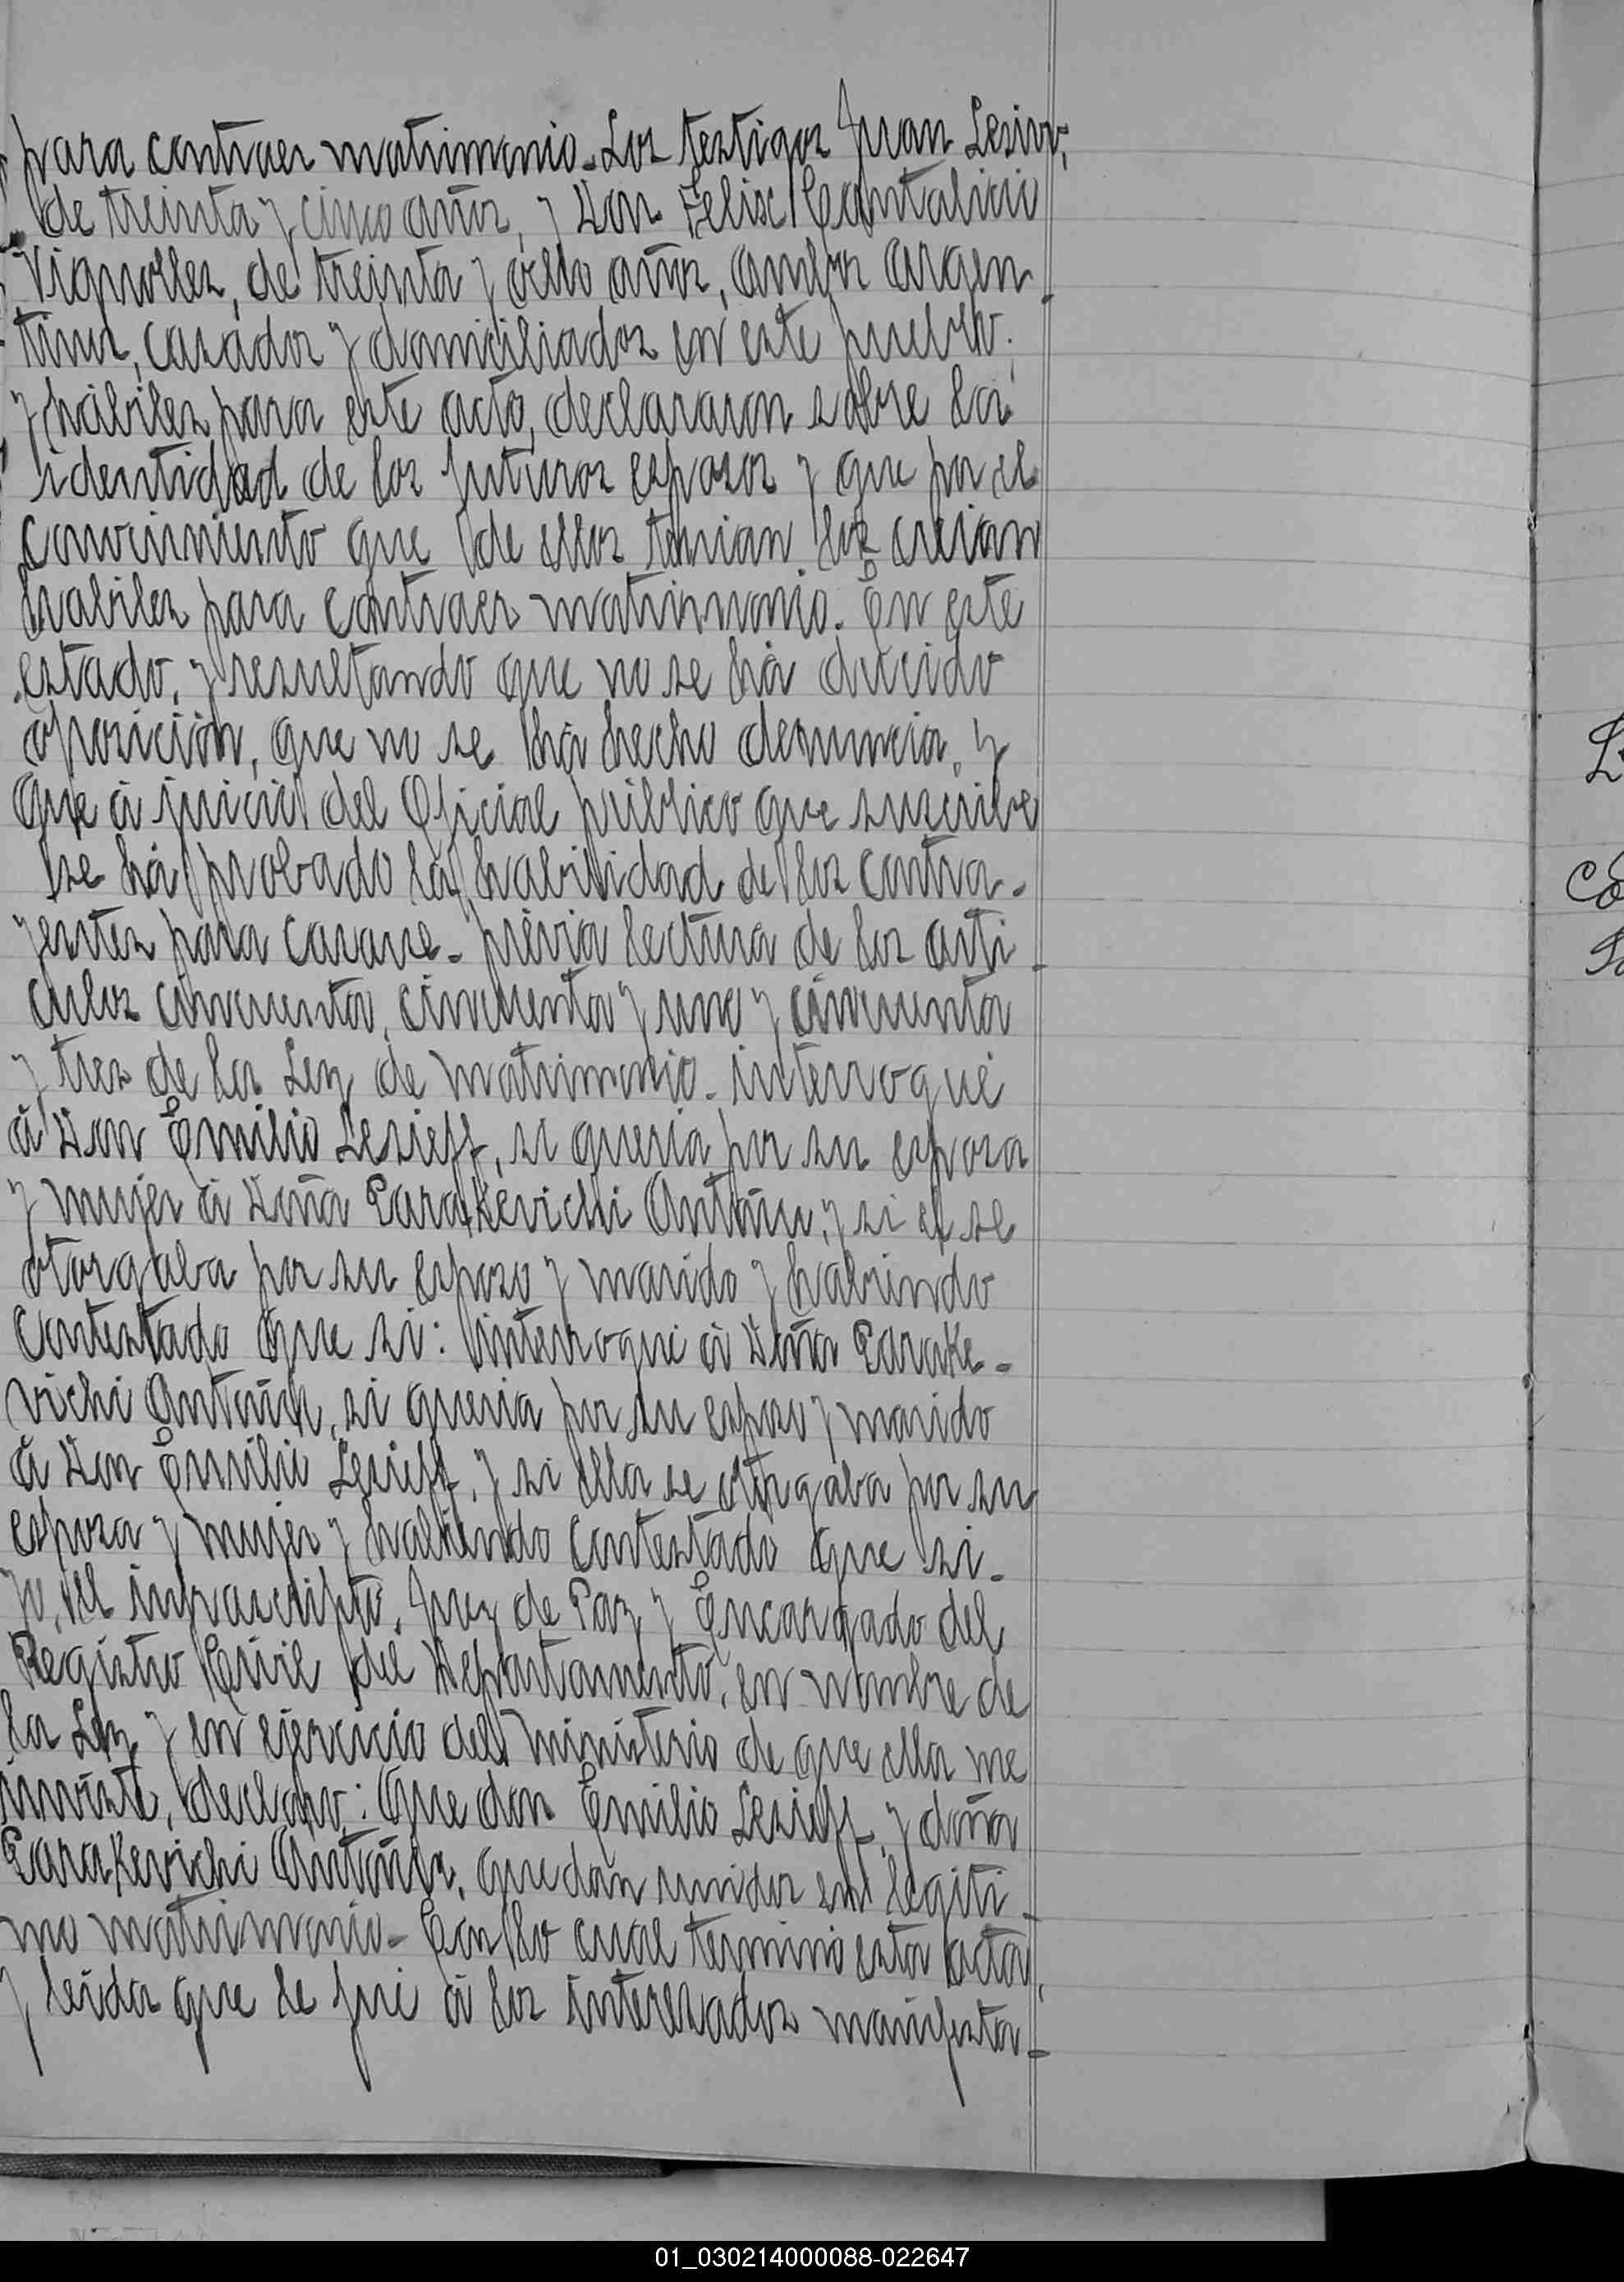 para contraer matrimonio. Los testigos Juan
de treinta y cinco años, y Don Felix Cantalicio
Vignolles, de treinta y ocho años, ambos argen-
tinos, casados y domiciliados en este pueblo;
y hábiles para este acto, declararon sobre la
identidad de los futuros esposos y que por el
conocimiento que de ellos tenian los creian
habiles para contraer matrimonio. En este
estado, y resultando que no se há ducido
oposición, que no se há hecho denuncia, y
que á juicio del Oficial público que suscribe
se há probado la habilidad de los contra-
yentes para casarse - prévia lectura de los arti-
culos cincuenta, cincuenta y uno y cincuenta
y tres de la Ley de matrimonio - interrogué
á Don Emilio Lesieff, si queria por su esposa
y mujer á Doña Parakevichi y si el se
otorgaba por su esposo y marido y habiendo
contestado que si: interrogué á Doña Parake-
vichi si queria por su esposo y marido
á Don Emilio Lesieff, y si ella se otorgaba por su
esposa y mujer y habiendo contestado que si -
yo, el infrascripto, Juez de Paz y Encargado del
Registro Civil del Departamento, en nombre de
la Ley y en ejercicio del ministerio de que ella me
inviste, declaro: Que don Emilio Lesieff, y doña
Parakevichi quedan unidos en legiti-
mo matrimonio - Con lo cual terminó esta acta,
y leida que le fué á los interesados manifesta-
01_030214000088-022647